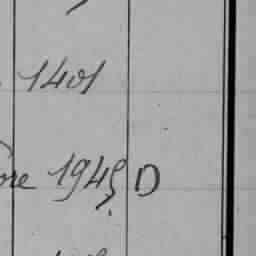 1401
ore 1945 D